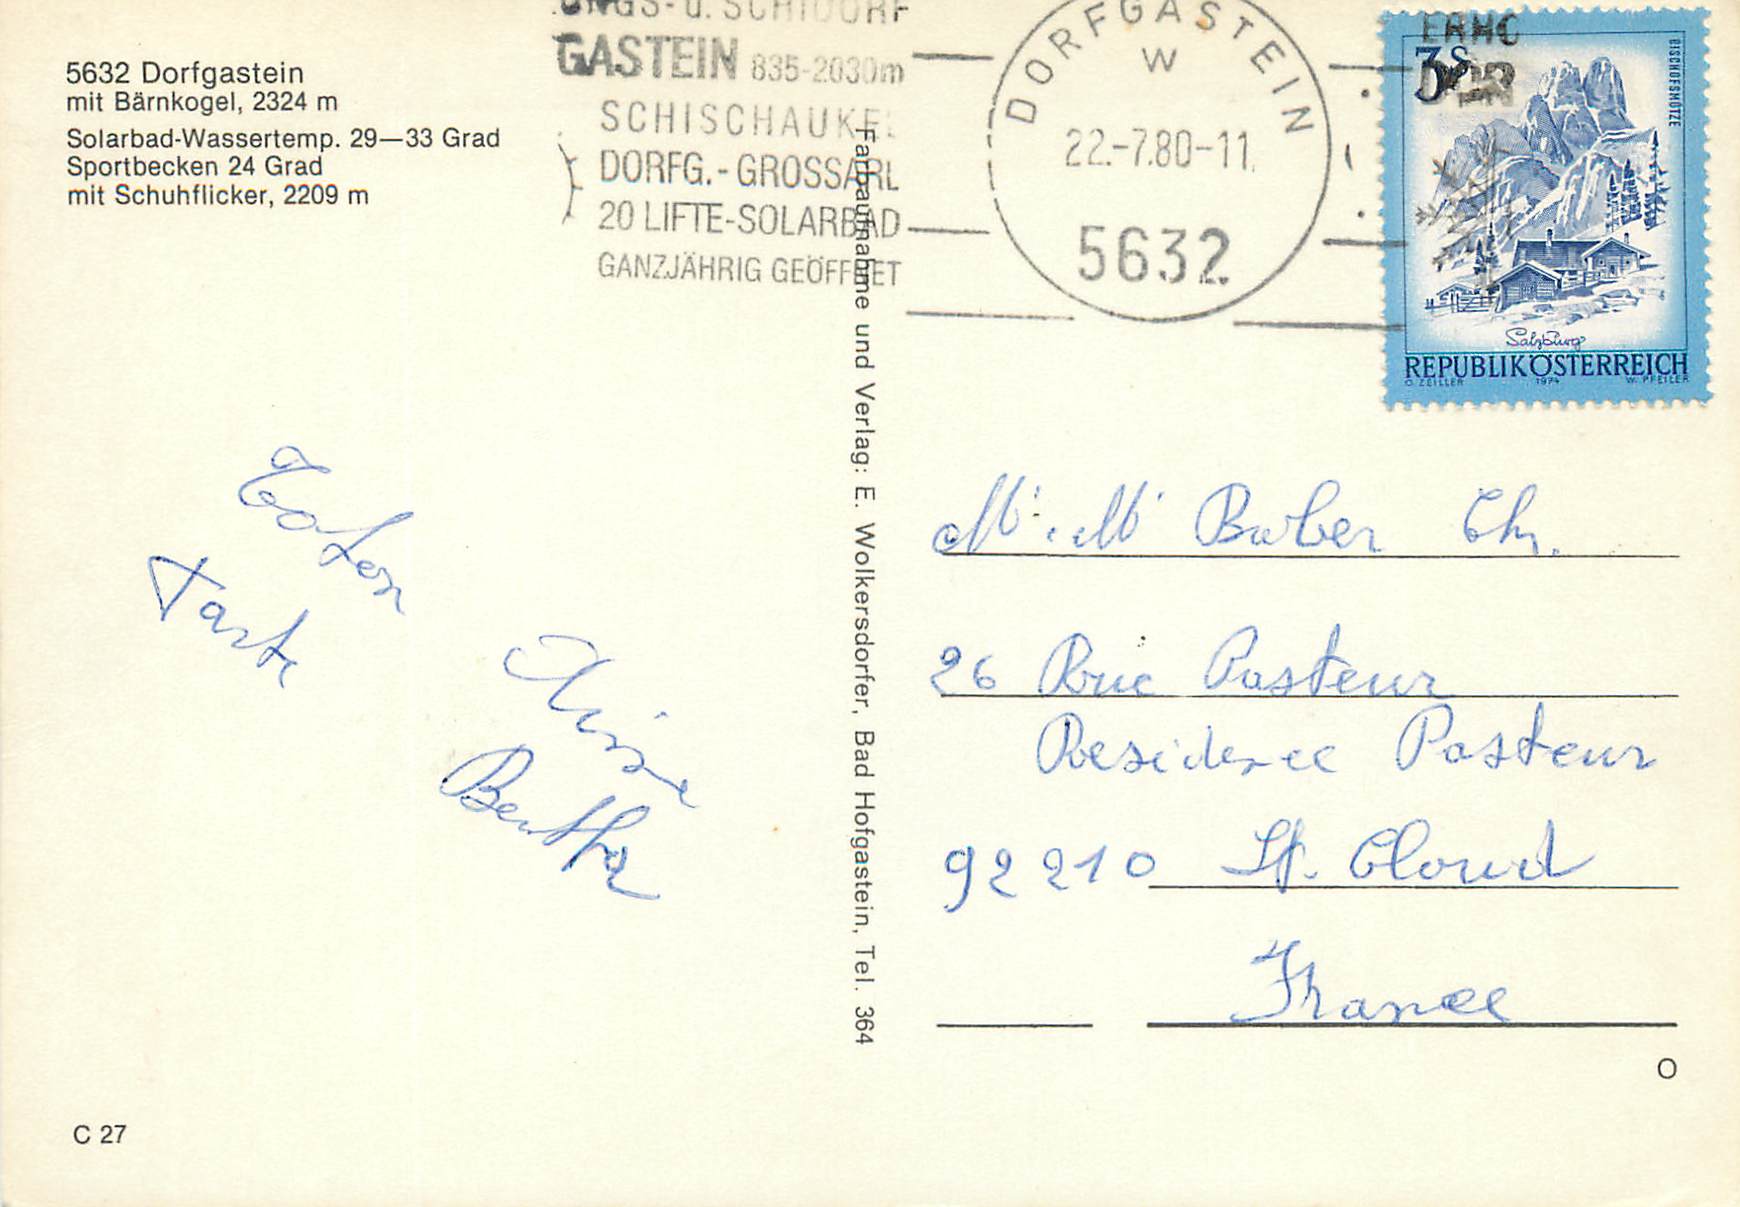 5632 Dorfgastein
mit Bärnkogel, 2324 m
Solarbad-Wassertemp. 29—33 Grad
Sportbecken 24 Grad
mit Schuhflicker, 2209 m
GASTEIN 835-2030m
SCHISCHAUKEL
DORFG.-GROSSARL
20 LIFTE-SOLARBAD
GANZJÄHRIG GEÖFFNET
DORFGASTEIN
W
22.-7.80-11
5632
3S
BISCHOFSMÜTZE
Salzburg
REPUBLIK ÖSTERREICH
O. ZEILLER 1974 W. PFEILER
Farbaufnahme und Verlag: E. Wolkersdorfer, Bad Hofgastein, Tel. 364
Bertha
26 Rue Pasteur
Residence Pasteur
92210 St. Cloud
France
O
C 27